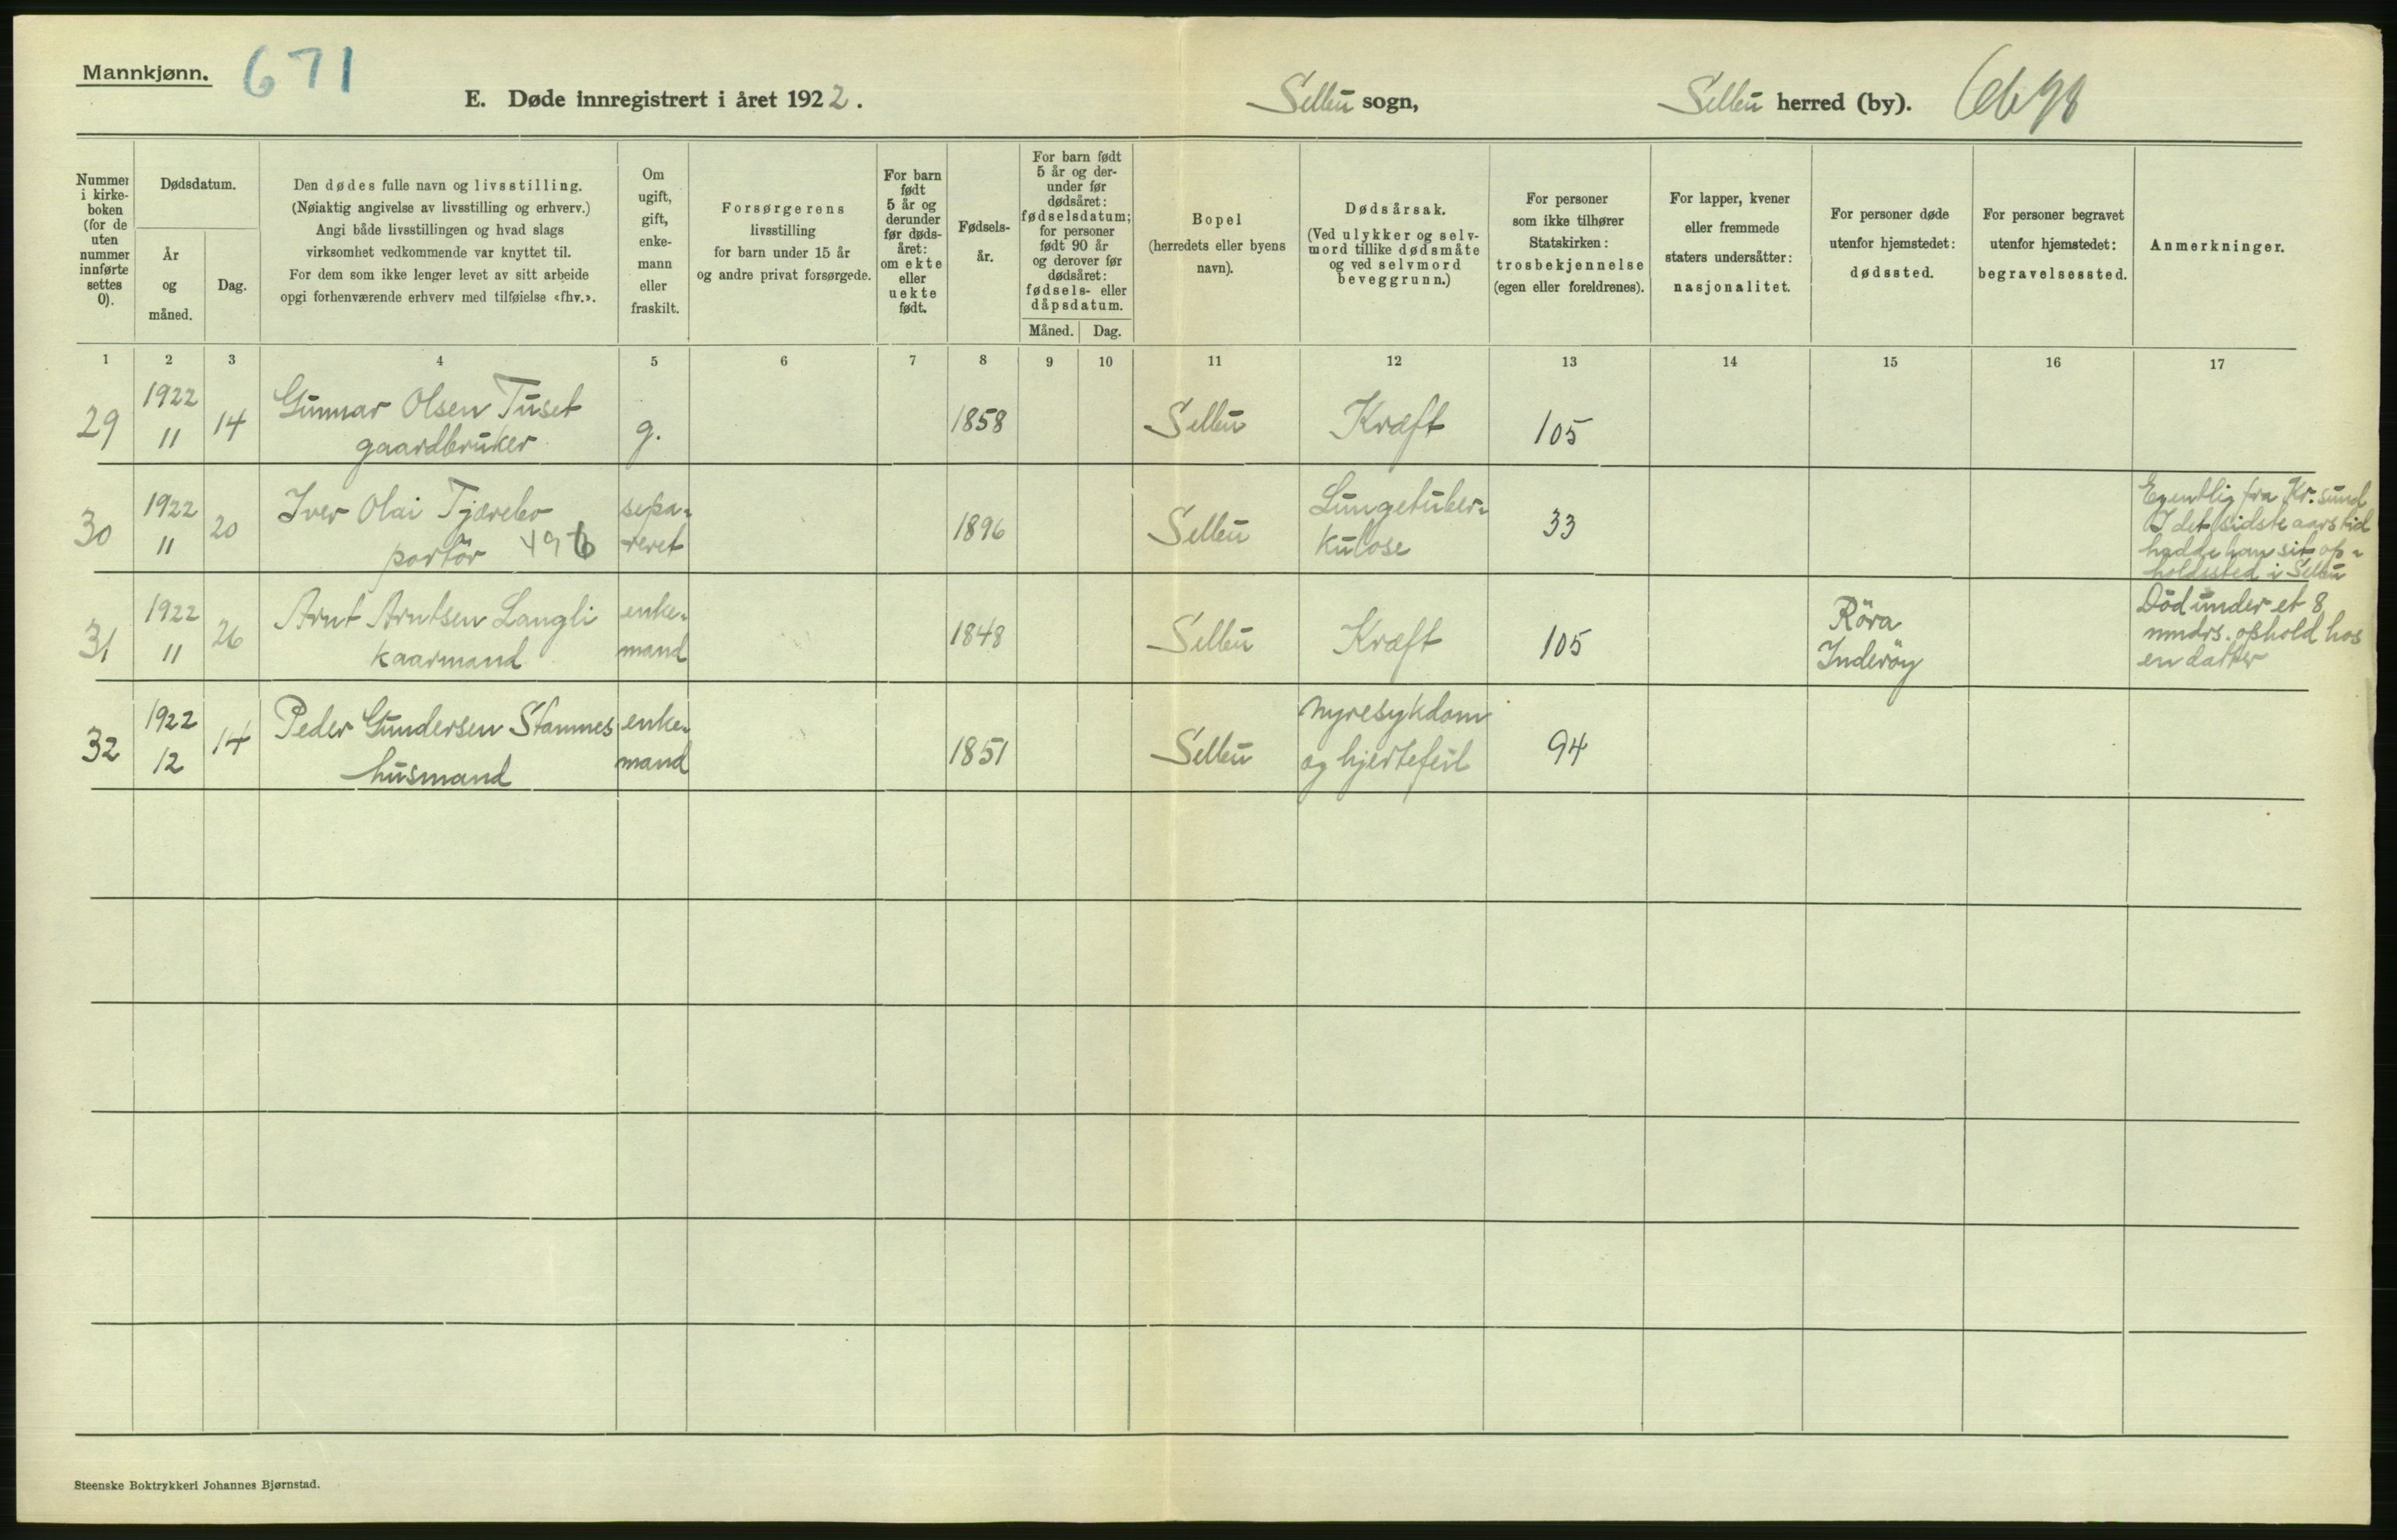 Mannkjønn. 671
E. Døde innregistrert i året 1922. Selbu sogn, Selbu herred (by).
Nummer
i kirke-
boken
(for de
uten
nummer
innførte
settes
0).
Dødsdatum.
År
og
måned.
Dag.
Den dødes fulle navn og livsstilling.
(Nøiaktig angivelse av livsstilling og erhverv.)
Angi både livsstillingen og hvad slags
virksomhet vedkommende var knyttet til.
For dem som ikke lenger levet av sitt arbeide
opgi forhenværende erhverv med tilføielse «fhv.».
Om
ugift,
gift,
enke-
mann
eller
fraskilt.
Forsørgerens
livsstilling
for barn under 15 år
og andre privat forsørgede.
For barn
født
5 år og
derunder
før døds-
året:
om ekte
eller
uekte
født.
Fødsels-
år.
For barn født
5 år og der-
under før
dødsåret:
fødselsdatum;
for personer
født 90 år
og derover før
dødsåret:
fødsels- eller
dåpsdatum.
Måned. Dag.
Bopel
(herredets eller byens
navn).
Dødsårsak.
(Ved ulykker og selv-
mord tillike dødsmåte
og ved selvmord
beveggrunn.)
For personer
som ikke tilhører
Statskirken:
trosbekjennelse
(egen eller foreldrenes).
For lapper, kvener
eller fremmede
staters undersåtter:
nasjonalitet.
For personer døde
utenfor hjemstedet:
dødssted.
For personer begravet
utenfor hjemstedet:
begravelsessted.
Anmerkninger.
1 2 3 4 5 6 7 8 9 10 11 12 13 14 15 16 17
29 1922 11 14 Gunnar Olsen Tuset
gaardbruker g. 1858 Selbu Kræft 105
30 1922 11 20 Iver Olai Tjærebo
portör 496 sepa-
reret 1896 Selbu Lungetuber-
kulose 33
Egentlig fra Kr.sund
I det sidste aars tid
hadde han sit op-
holdssted i Selbu
31 1922 11 26 Arnt Arntsen Langli
kaarmand enke-
mand 1848 Selbu Kræft 105 Röra
Inderöy
Död under et 8
mndrs. ophold hos
en datter
32 1922 12 14 Peder Gundersen Stamnes
husmand enke-
mand 1851 Selbu Nyresykdom
og hjertefeil 94
Steenske Boktrykkeri Johannes Bjørnstad.